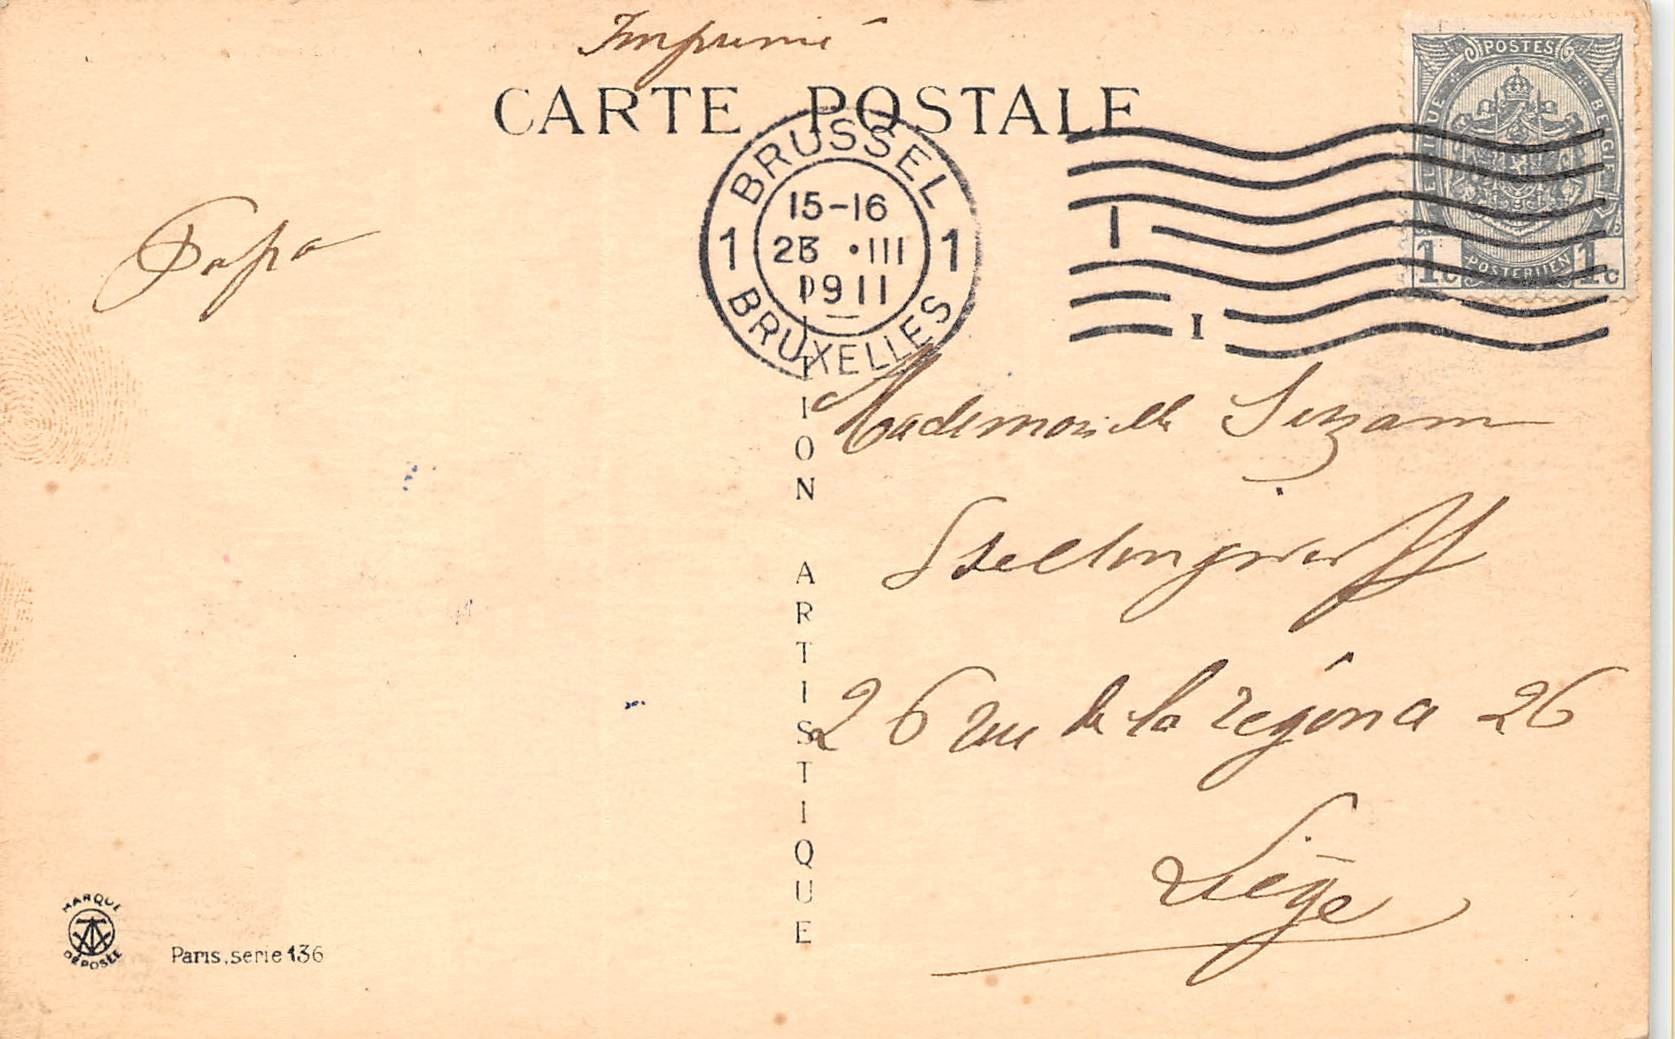 Imprimé
CARTE POSTALE
POSTES
BELGIQUE
BELGIË
1c POSTERIJEN 1c
BRUSSEL
15-16
1 23 •III 1
1911
BRUXELLES
I
I
Papa
Mademoiselle Suzanne
26 rue de la régence 26
Liège
TION ARTISTIQUE
MARQUE
DÉPOSÉE
Paris, serie 136